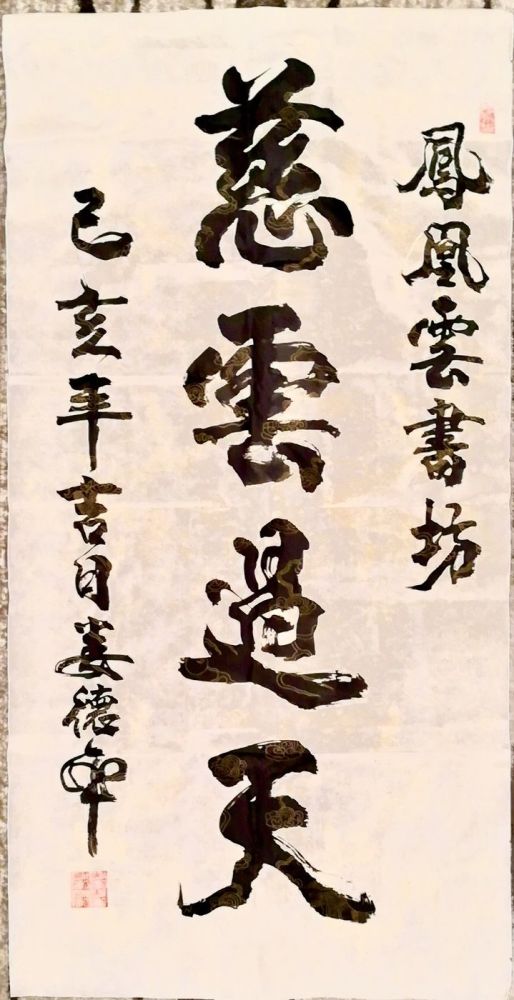 鳳凰雲書坊
慈雲過天
己亥年吉日姜德軍